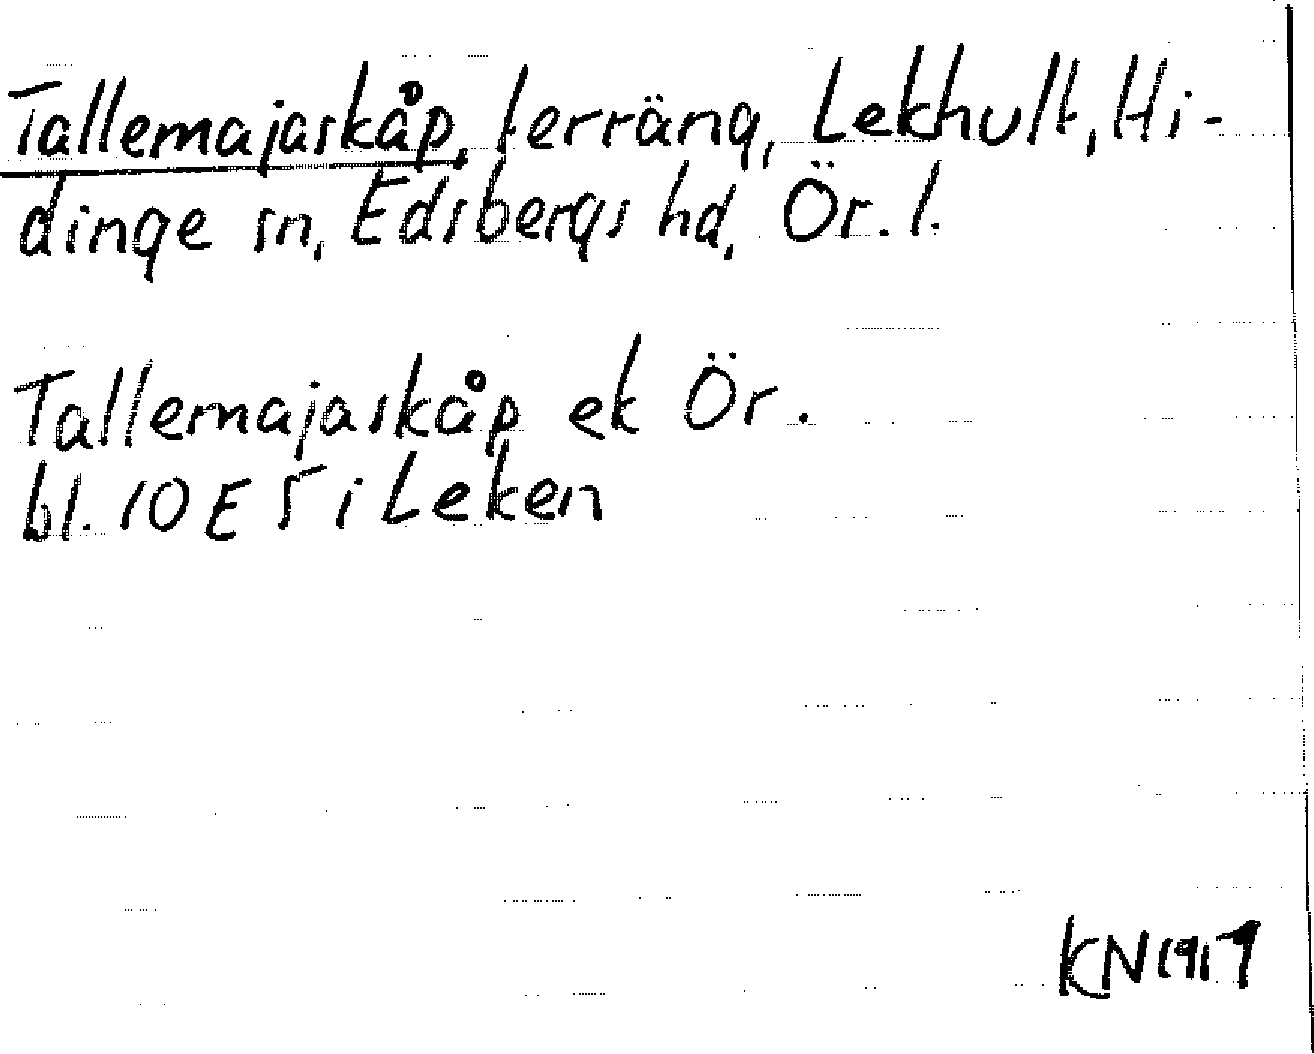 Tallemajaskåp, terräng, Lekhult, Hi-
dinge sn, Edsbergs hd, Ör. l.
Tallemajaskåp ek Ör.
bl. 10 E 5 i Leken
KN 1917